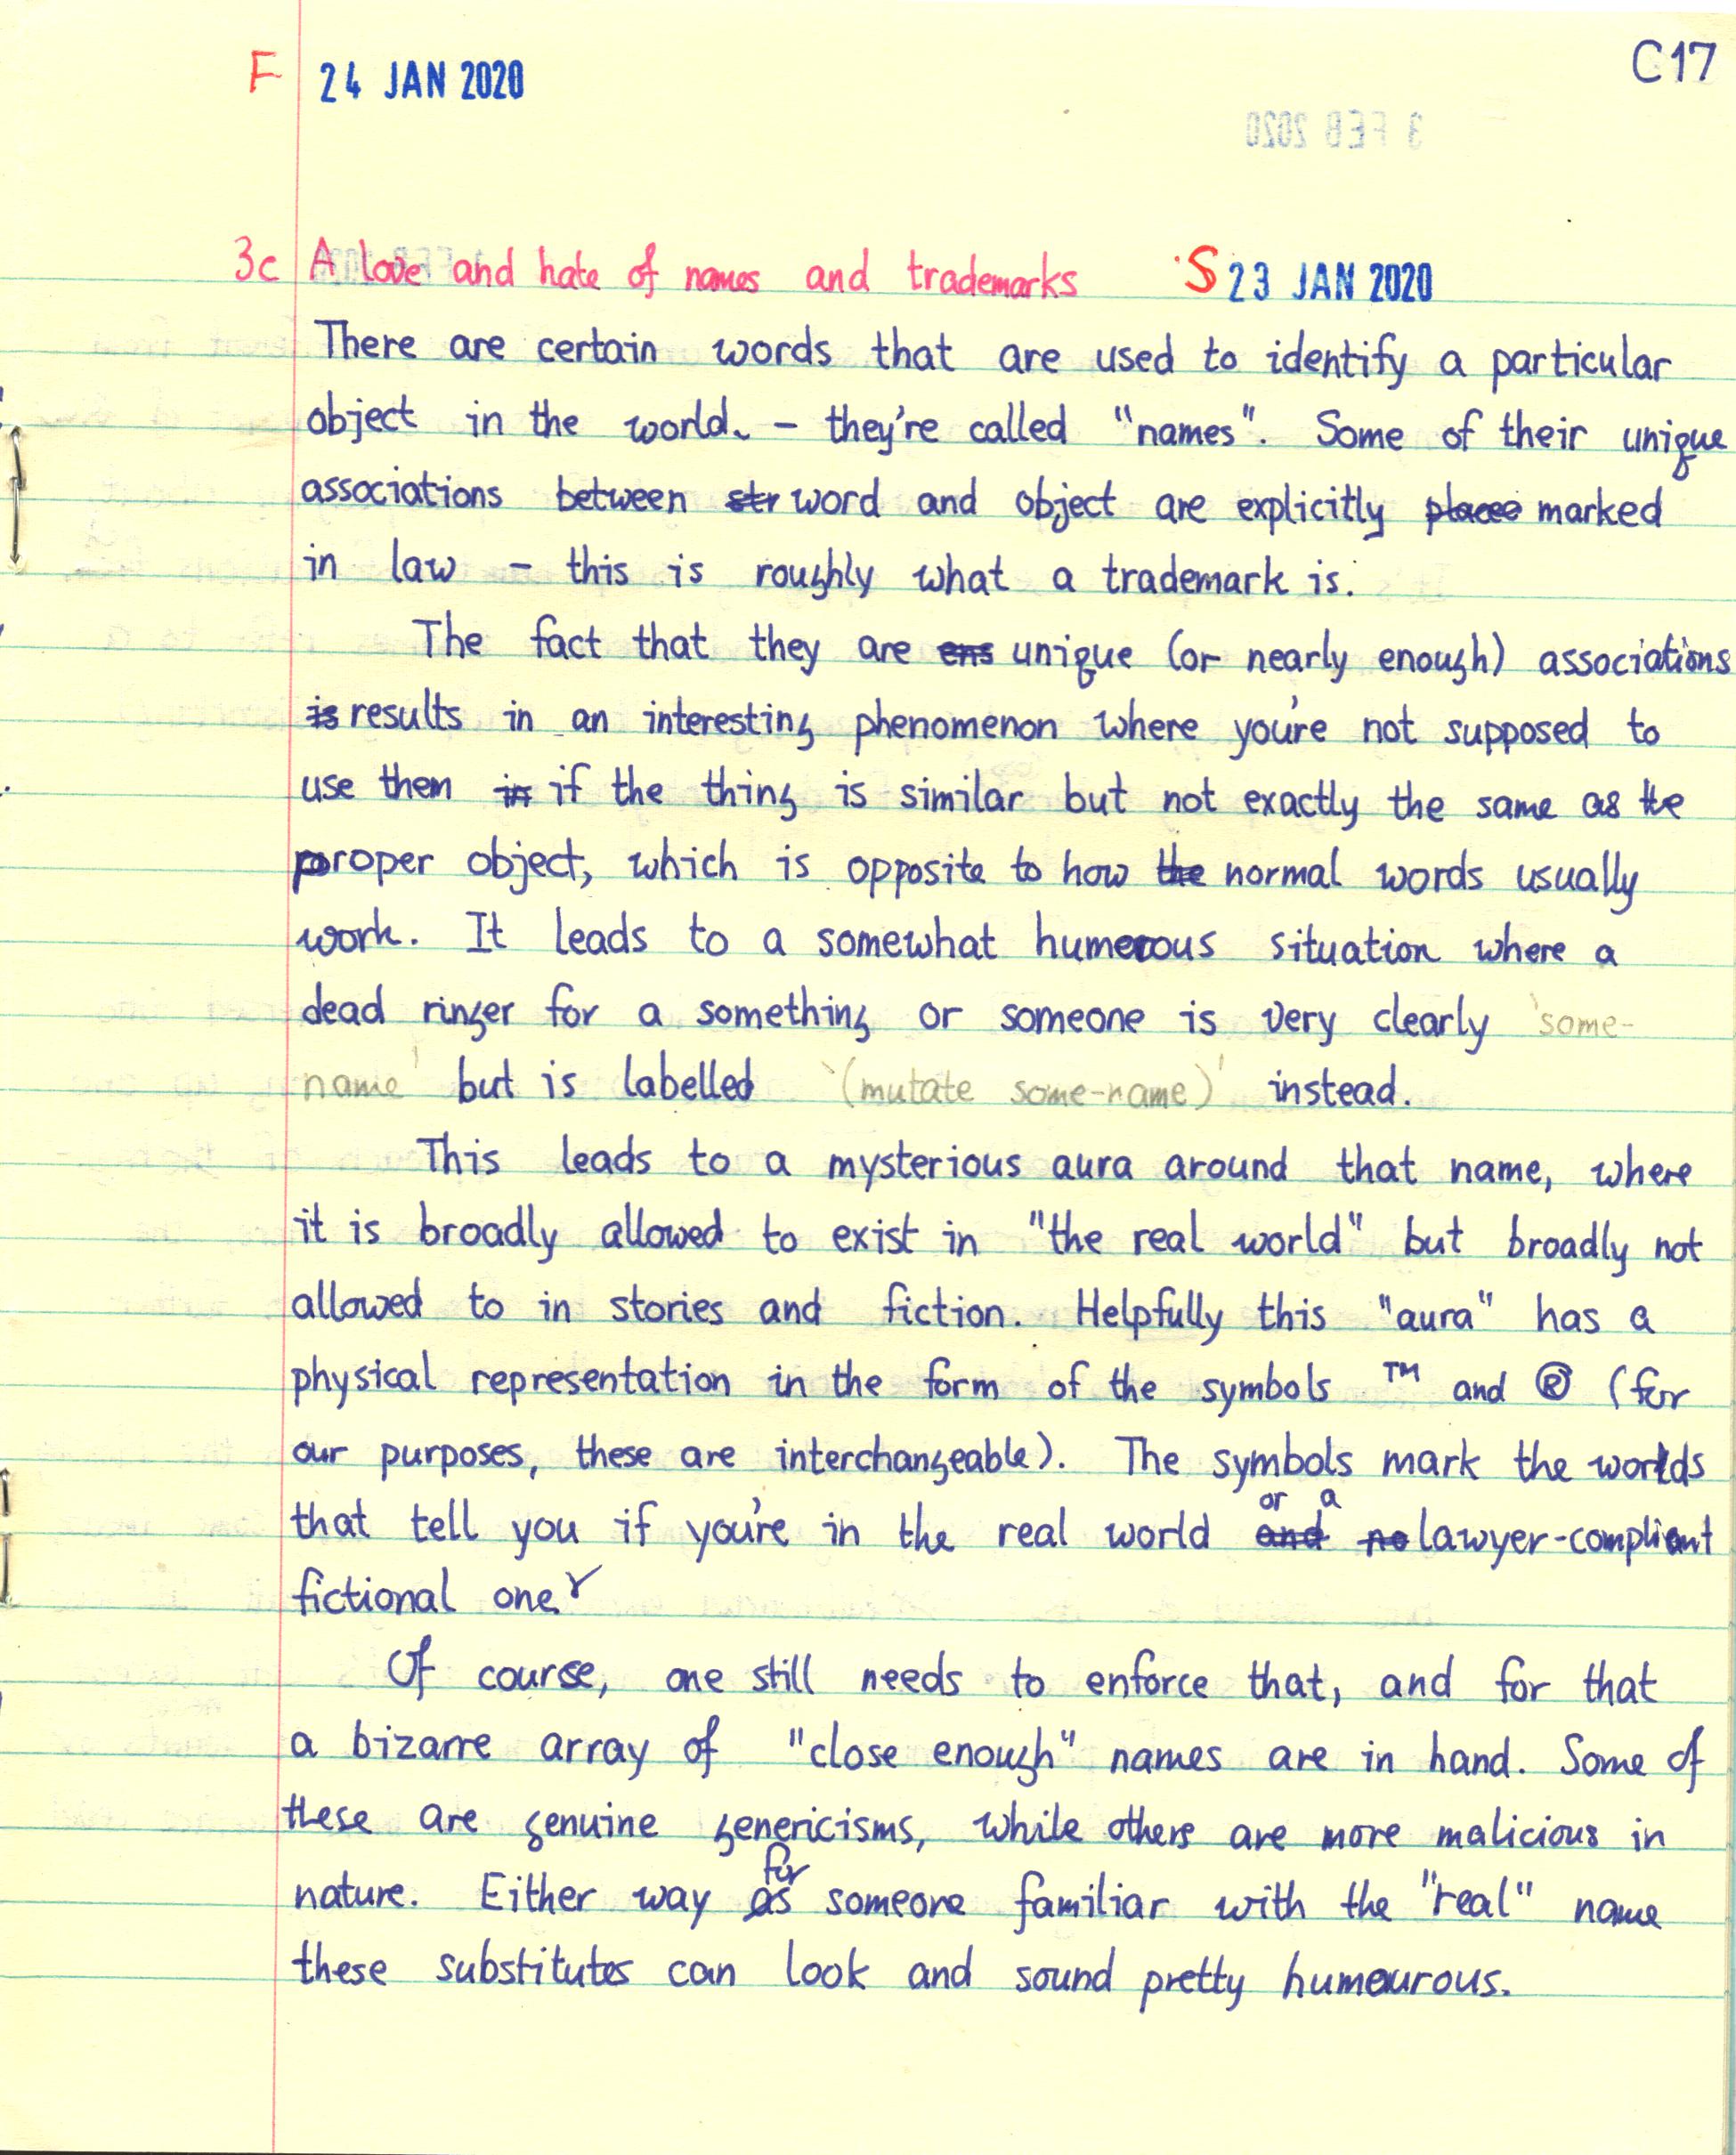 F 24 JAN 2020 C17
3 FEB 2020
3c A love and hate of names and trademarks S 23 JAN 2020
There are certain words that are used to identify a particular
object in the world. – they're called "names". Some of their unique
associations between str word and object are explicitly placee marked
in law – this is roughly what a trademark is.
The fact that they are ens unique (or nearly enough) associations
is results in an interesting phenomenon where you're not supposed to
use them in if the thing is similar but not exactly the same as the
proper object, which is opposite to how the normal words usually
work. It leads to a somewhat humerous situation where a
dead ringer for a something or someone is very clearly 'some-
name' but is labelled '(mutate some-name)' instead.
This leads to a mysterious aura around that name, where
it is broadly allowed to exist in "the real world" but broadly not
allowed to in stories and fiction. Helpfully this "aura" has a
physical representation in the form of the symbols ™ and ® (for
our purposes, these are interchangeable). The symbols mark the worlds
or a
that tell you if you're in the real world and no lawyer-compliant
fictional one.
Of course, one still needs to enforce that, and for that
a bizarre array of "close enough" names are in hand. Some of
these are genuine genericisms, while others are more malicious in
for
nature. Either way as someone familiar with the "real" name
these substitutes can look and sound pretty humourous.